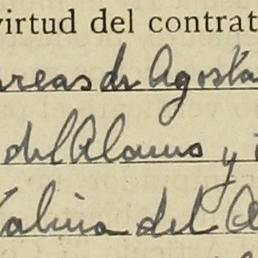 virtud del contrat
reas de Agosta
del Alamo y
Salina del A